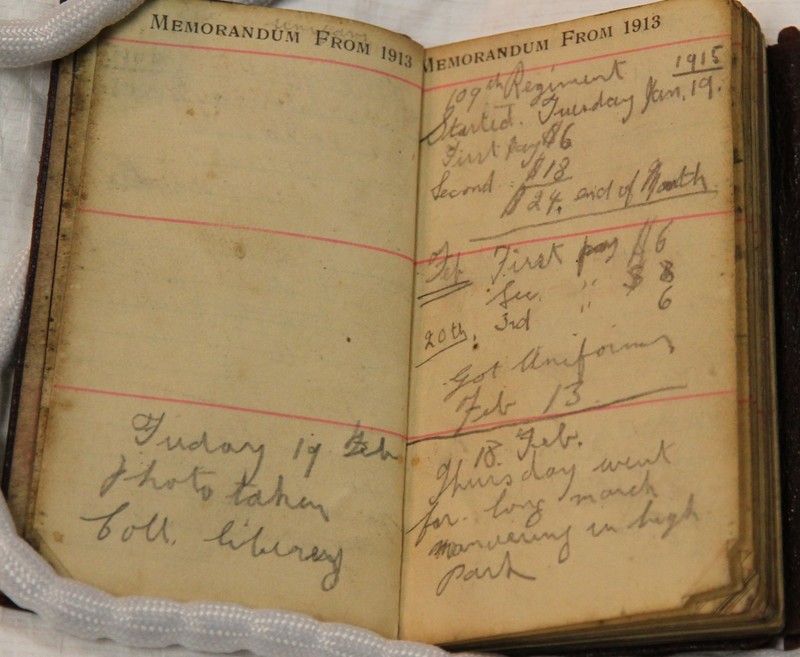 MEMORANDUM FROM 1913
Friday 19 Feb
photo taken
Coll. librery
MEMORANDUM FROM 1913
1915
109th Regiment
Started. Tuesday Jan. 19.
First pay $6
Second $18
$24. end of Month
Feb First pay $6
Sec. " $8
20th. 3rd 6
Got Uniforms
Feb 13
18. Feb.
Thursday went
for long march
manvering in high
Park